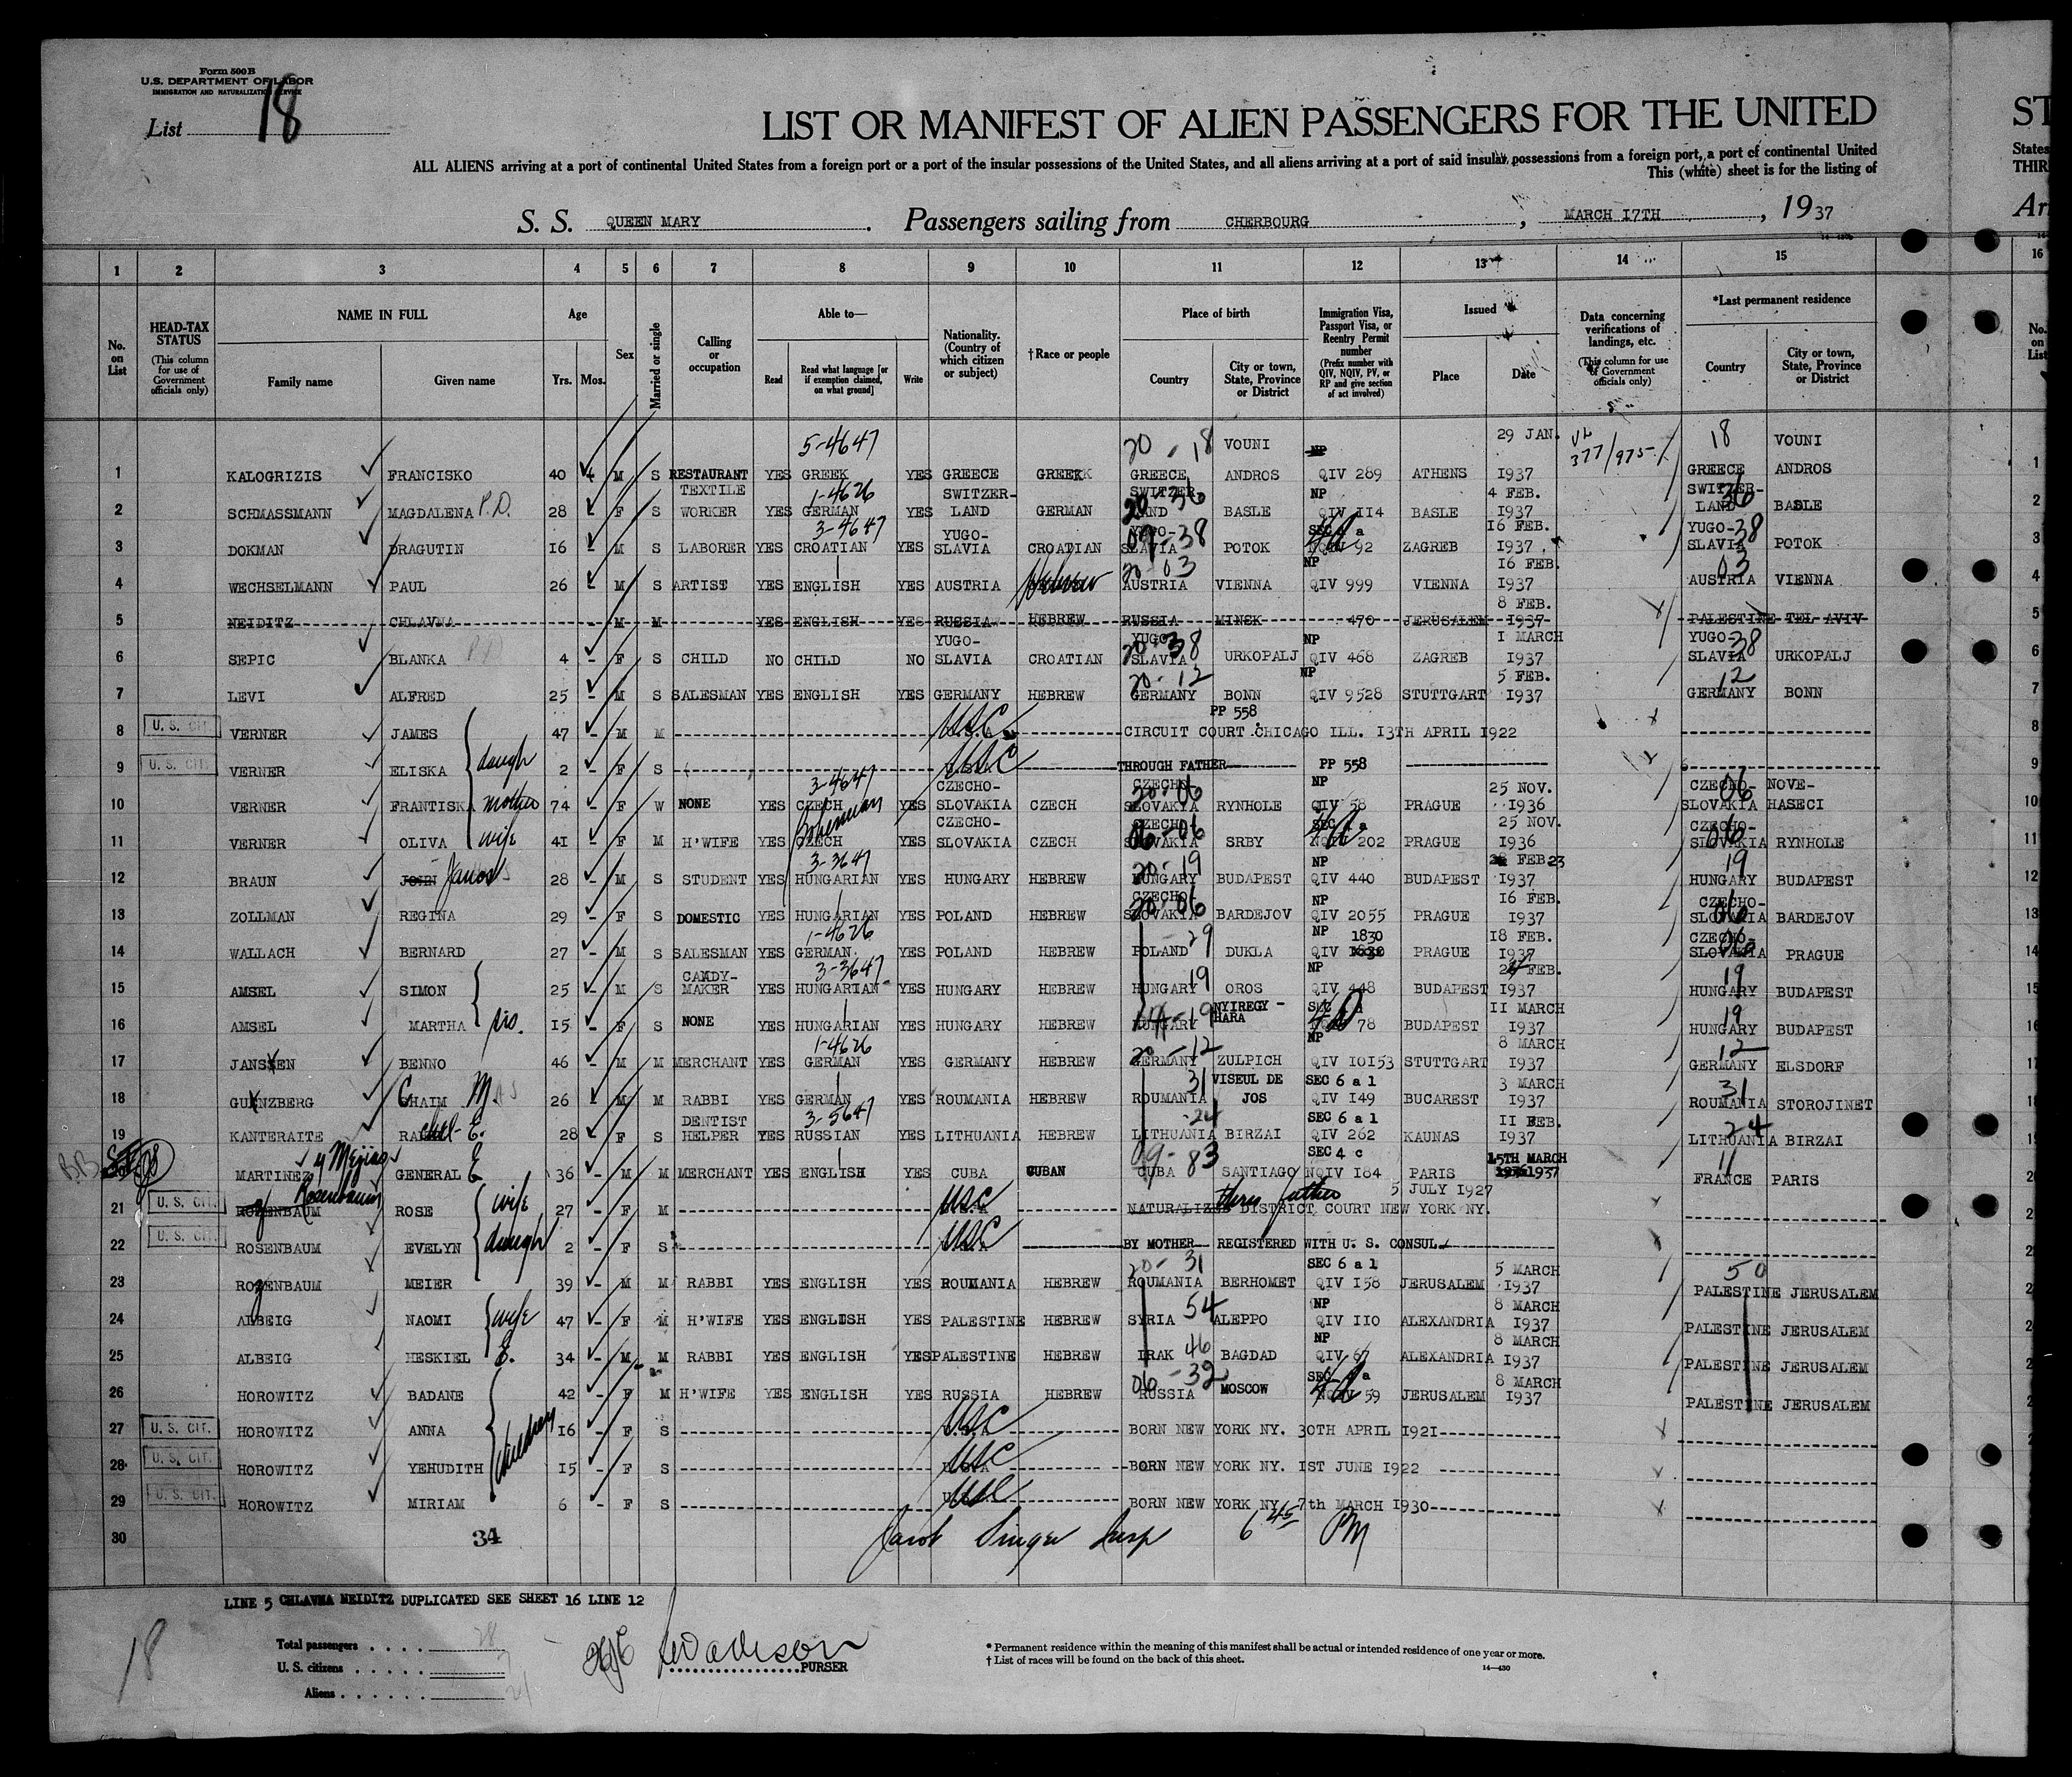 Form 500 B
U.S. DEPARTMENT OF LABOR
IMMIGRATION AND NATURALIZATION SERVICE
List 18
LIST OR MANIFEST OF ALIEN PASSENGERS FOR THE UNITED
ST
ALL ALIENS arriving at a port of continental United States from a foreign port or a port of the insular possessions of the United States, and all aliens arriving at a port of said insular possessions from a foreign port, a port of continental United
States
This (white) sheet is for the listing of
THIR
S. S. QUEEN MARY. Passengers sailing from CHERBOURG, MARCH 17TH, 1937
Ar
1 2 3 4 5 6 7 8 9 10 11 12 13 14 15 16
No. on List
HEAD-TAX STATUS (This column for use of Government officials only)
NAME IN FULL
Family name Given name
Age
Yrs. Mos.
Sex
Married or single
Calling or occupation
Able to—
Read Read what language [or if exemption claimed, on what ground] Write
Nationality. (Country of which citizen or subject)
†Race or people
Place of birth
Country City or town, State, Province or District
Immigration Visa, Passport Visa, or Reentry Permit number (Prefix number with QIV, NQIV, PV, or RP and give section of act involved)
Issued
Place Date
Data concerning verifications of landings, etc. (This column for use of Government officials only)
*Last permanent residence
Country City or town, State, Province or District
No. on List
5-4647 20-18 VOUNI NP 29 JAN. 377/975 18 VOUNI
1 KALOGRIZIS FRANCISKO 40 4 M S RESTAURANT YES GREEK YES GREECE GREEK GREECE ANDROS QIV 289 ATHENS 1937 GREECE ANDROS 1
TEXTILE 1-4626 SWITZER- SWITZER- 20-36 NP 4 FEB. SWITZER- 36
2 SCHMASSMANN MAGDALENA P.D. 28 - F S WORKER YES GERMAN YES LAND GERMAN LAND BASLE QIV 114 BASLE 1937 LAND BASLE 2
3-4647 YUGO- YUGO- 38 SEC 4 a 16 FEB. YUGO- 38
3 DOKMAN DRAGUTIN 16 - M S LABORER YES CROATIAN YES SLAVIA CROATIAN SLAVIA POTOK NQIV 92 ZAGREB 1937 SLAVIA POTOK 3
20-03 NP 16 FEB. 03
4 WECHSELMANN PAUL 26 - M S ARTIST YES ENGLISH YES AUSTRIA Hebrew AUSTRIA VIENNA QIV 999 VIENNA 1937 AUSTRIA VIENNA 4
8 FEB.
5 NEIDITZ CHLAVNA - M M YES ENGLISH YES RUSSIA HEBREW RUSSIA MINSK 470 JERUSALEM 1937 PALESTINE TEL AVIV 5
YUGO- YUGO- 20-38 NP 1 MARCH YUGO- 38
6 SEPIC BLANKA P.D. 4 - F S CHILD NO CHILD NO SLAVIA CROATIAN SLAVIA URKOPALJ QIV 468 ZAGREB 1937 SLAVIA URKOPALJ 6
20-12 NP 5 FEB. 12
7 LEVI ALFRED 25 - M S SALESMAN YES ENGLISH YES GERMANY HEBREW GERMANY BONN QIV 9528 STUTTGART 1937 GERMANY BONN 7
PP 558
8 U. S. CIT. VERNER JAMES 47 - M M USC CIRCUIT COURT CHICAGO ILL. 13TH APRIL 1922 8
9 U. S. CIT. VERNER ELISKA daugh 2 - F S USC THROUGH FATHER PP 558 9
3-4647 CZECHO- CZECHO- 20-06 NP 25 NOV. CZECHO- 06 NOVE-
10 VERNER FRANTISKA mother 74 - F W NONE YES CZECH YES SLOVAKIA CZECH SLOVAKIA RYNHOLE QIV 58 PRAGUE 1936 SLOVAKIA HASECI 10
Bohemian CZECHO- CZECHO- 06-06 SEC 4 a 25 NOV. CZECHO- 06
11 VERNER OLIVA wife 41 - F M H'WIFE YES CZECH YES SLOVAKIA CZECH SLOVAKIA SRBY NQIV 202 PRAGUE 1936 SLOVAKIA RYNHOLE 11
3-3647 20-19 NP FEB 23 19
12 BRAUN JOHN Janos 28 - M S STUDENT YES HUNGARIAN YES HUNGARY HEBREW HUNGARY BUDAPEST QIV 440 BUDAPEST 1937 HUNGARY BUDAPEST 12
CZECHO- 20-06 NP 16 FEB. CZECHO- 06
13 ZOLLMAN REGINA 29 - F S DOMESTIC YES HUNGARIAN YES POLAND HEBREW SLOVAKIA BARDEJOV QIV 2055 PRAGUE 1937 SLOVAKIA BARDEJOV 13
1-4626 29 NP 1830 18 FEB. CZECHO- 06
14 WALLACH BERNARD 27 - M S SALESMAN YES GERMAN YES POLAND HEBREW POLAND DUKLA QIV PRAGUE 1937 SLOVAKIA PRAGUE 14
CANDY- 3-3647 19 NP FEB. 19
15 AMSEL SIMON 25 - M S MAKER YES HUNGARIAN YES HUNGARY HEBREW HUNGARY OROS QIV 448 BUDAPEST 1937 HUNGARY BUDAPEST 15
19 NYIREGY-HARA SEC 4 a 11 MARCH 19
16 AMSEL MARTHA sis. 15 - F S NONE YES HUNGARIAN YES HUNGARY HEBREW HUNGARY NQIV 78 BUDAPEST 1937 HUNGARY BUDAPEST 16
1-4626 20-12 NP 8 MARCH 12
17 JANSSEN BENNO 46 - M M MERCHANT YES GERMAN YES GERMANY HEBREW GERMANY ZULPICH QIV 10153 STUTTGART 1937 GERMANY ELSDORF 17
31 VISEUL DE SEC 6 a 1 3 MARCH 31
18 GUENZBERG CHAIM M 26 - M M RABBI YES GERMAN YES ROUMANIA HEBREW ROUMANIA JOS QIV 149 BUCAREST 1937 ROUMANIA STOROJINET 18
DENTIST 3-5647 -24 SEC 6 a 1 11 FEB. 24
19 KANTERAITE Rachel E. 28 - F S HELPER YES RUSSIAN YES LITHUANIA HEBREW LITHUANIA BIRZAI QIV 262 KAUNAS 1937 LITHUANIA BIRZAI 19
B.B. y Mejias 09-83 SEC 4 c 15TH MARCH 11
MARTINEZ GENERAL E 36 - M M MERCHANT YES ENGLISH YES CUBA CUBAN CUBA SANTIAGO NQIV 184 PARIS 1936 1937 FRANCE PARIS
Rosenbaum thru father 5 JULY 1927
21 U. S. CIT. ROZENBAUM ROSE wife 27 - F M USC NATURALIZED DISTRICT COURT NEW YORK NY.
22 U. S. CIT. ROSENBAUM EVELYN daugh 2 - F S USC BY MOTHER REGISTERED WITH U. S. CONSUL
20-31 SEC 6 a 1 5 MARCH 50
23 ROZENBAUM MEIER 39 - M M RABBI YES ENGLISH YES ROUMANIA HEBREW ROUMANIA BERHOMET QIV 158 JERUSALEM 1937 PALESTINE JERUSALEM
54 NP 8 MARCH
24 ALBEIG NAOMI wife 47 - F M H'WIFE YES ENGLISH YES PALESTINE HEBREW SYRIA ALEPPO QIV 110 ALEXANDRIA 1937 PALESTINE JERUSALEM
46 NP 8 MARCH
25 ALBEIG HESKIEL E. 34 - M M RABBI YES ENGLISH YES PALESTINE HEBREW IRAK BAGDAD QIV 67 ALEXANDRIA 1937 PALESTINE JERUSALEM
06-32 SEC 4 a 8 MARCH
26 HOROWITZ BADANE 42 - F M H'WIFE YES ENGLISH YES RUSSIA HEBREW RUSSIA MOSCOW NQIV 59 JERUSALEM 1937 PALESTINE JERUSALEM
27 U. S. CIT. HOROWITZ ANNA children 16 - F S USC BORN NEW YORK NY. 30TH APRIL 1921
28 U. S. CIT. HOROWITZ YEHUDITH 15 - F S USC BORN NEW YORK NY. 1ST JUNE 1922
29 U. S. CIT. HOROWITZ MIRIAM 6 - F S USC BORN NEW YORK NY. 7th MARCH 1930
30 34 Jacob Singer Insp 6 45 PM
LINE 5 CHLAVNA NEIDITZ DUPLICATED SEE SHEET 16 LINE 12
18
Total passengers . . . . 28
U. S. citizens . . . . . 7
Aliens . . . . . . 21
PURSER
* Permanent residence within the meaning of this manifest shall be actual or intended residence of one year or more.
† List of races will be found on the back of this sheet.
14—430